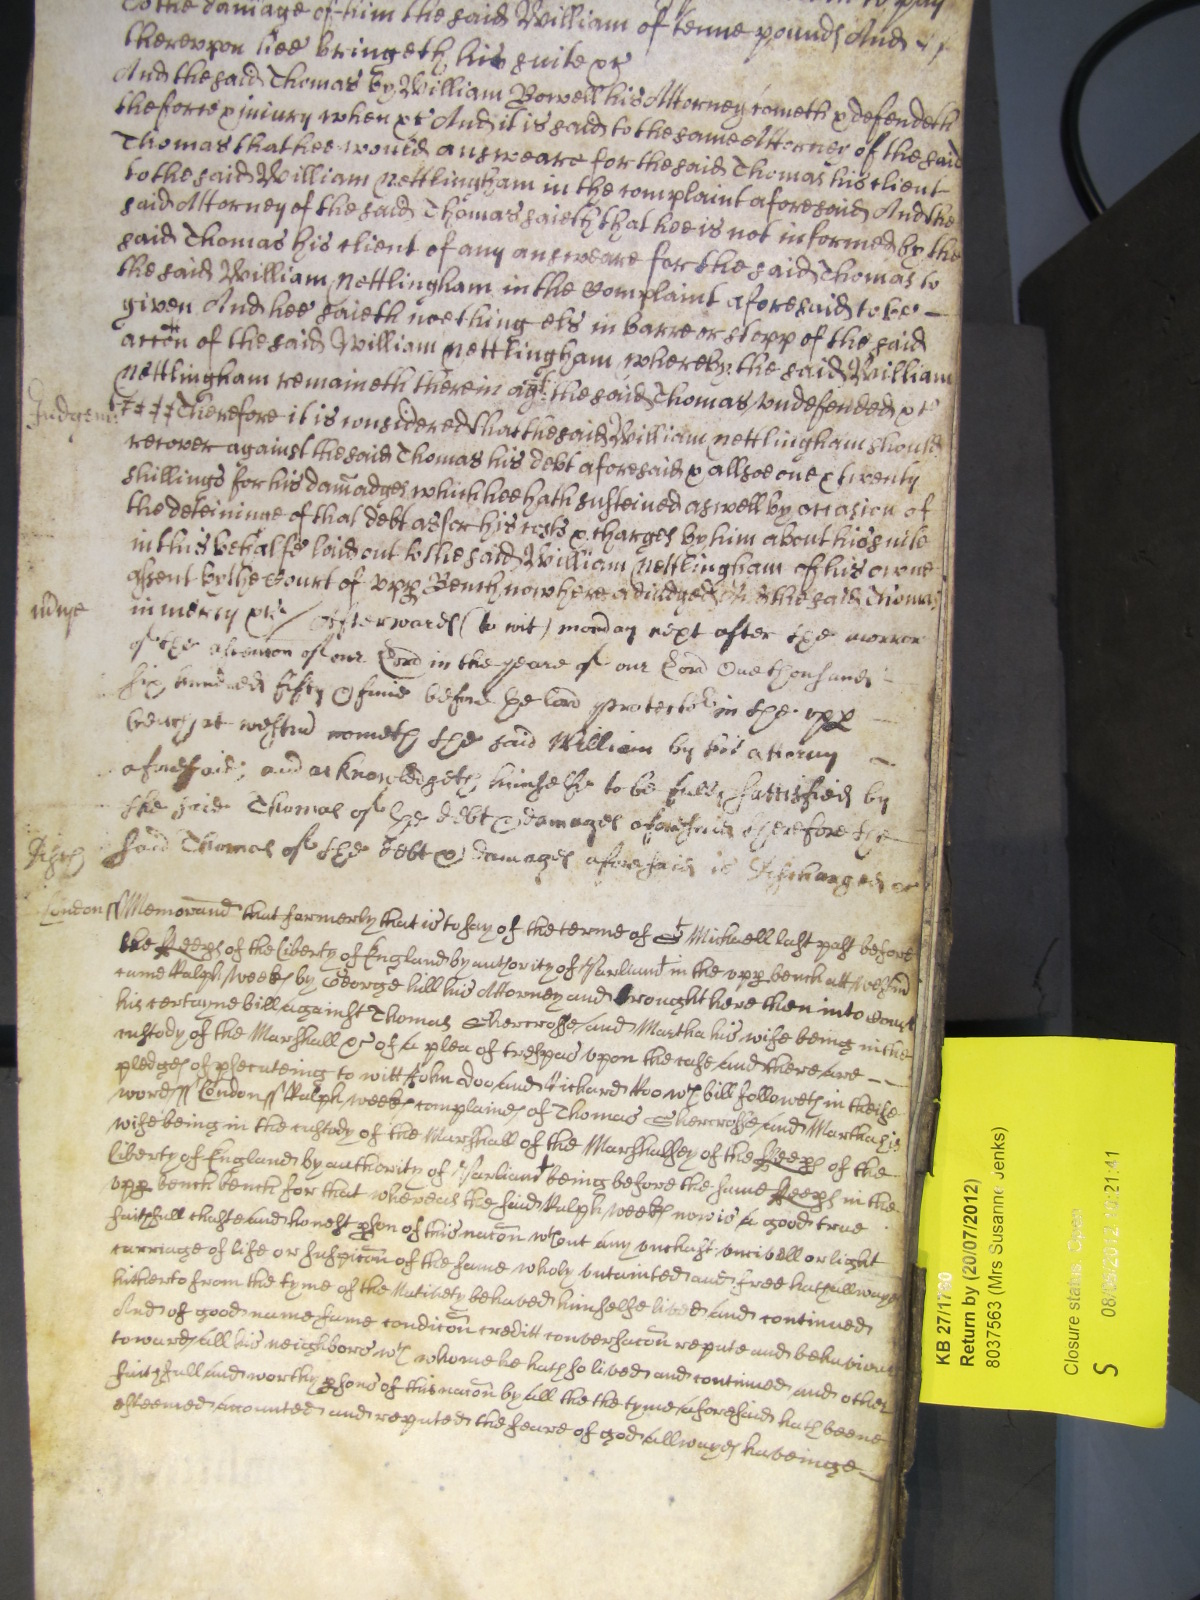 to the damage of him the said William of tenne pounds And
thereupon hee bringeth his suite &c
And the said Thomas by William Bowell his Attorney cometh & defendeth
the force & iniury when &c And it is said to the same Attorney of the said
Thomas that hee would answeare for the said Thomas his client
to the said William Nettlingham in the complaint aforesaid And the
said Attorney of the said Thomas saieth that hee is not informed by the
said Thomas his client of any answeare for the said Thomas to
the said William Nettlingham in the Complaint aforesaid to bee
given And hee saieth noething els in barre or stopp of the said
accon of the said William Nettlingham whereby the said William
Nettlingham remaineth therein agt the said Thomas vndefended &c
Judgemt Therefore it is considered that the said William Nettlingham should
recover against the said Thomas his debt aforesaid & allsoe one & twenty
shillings for his damadges which hee hath susteined aswell by occasion of
the deteininge of that debt as for his costs & charges by him about his suite
in this behalfe laid out to the said William Nettlingham of his owne
assent by the Court of vpp Bench now here adiudged And the said Thomas
mdye in mercy &c Afterwards (to wit) monday next after the morrow
of the ascension of our Lord in the yeare of our Lord One thousand
six hundred fifty & fiue before the lord protector in the vpp
bench at westm cometh the said William by his attorny
aforesaid, and acknowledgeth himselfe to be fully sattisfied by
the said Thomas of the debt & damages aforesaid therefore the
said Thomas of the debt & damages aforesaid is discharged &c
London ss Memorand that formerly that is to say of the terme of St Michaell last past before
the Keeps of the Liberty of England by authority of Parliamt in the vpp bench att Westm
came Ralph Weekes by George hill his Attorney and brought here then into Court
his certayne bill against Thomas Shercrosse and Martha his wife being in the
custody of the Marshall &c of a plea of trespas vpon the case and there are
pledges of psecuteing to witt John Doo and Richard Roo wch bill followeth in theise
words ss London ss Ralph Weekes complaines of Thomas Shercrosse and Martha his
wife being in the custody of the Marshall of the Marshallsey of the Keeps of the
Liberty of England by authority of Parliamt being before the same Keeps in the
vpp bench bench for that whereas the said Ralph Weekes now is a good true
faithfull chaste and honest pson of this nacon wthout any vnchast vncivell or light
carriage of life or suspicon of the same wholy vntainted and free hath allwayes
hitherto from the tyme of the Nativety behaved himselfe lived and continued
And of good name fame condicon creditt conversacon repute and behaviour
towards all his neighbors wth whome he hath so lived and continued and other
faithfull and worthy psons of this nacon by all the the tyme aforesaid hath beene
esteemed accounted and reputed the feare of god allwayes haveinge
KB 27/1790
Return by (20/07/2012)
8037563 (Mrs Susanne Jenks)
Closure status: Open
S